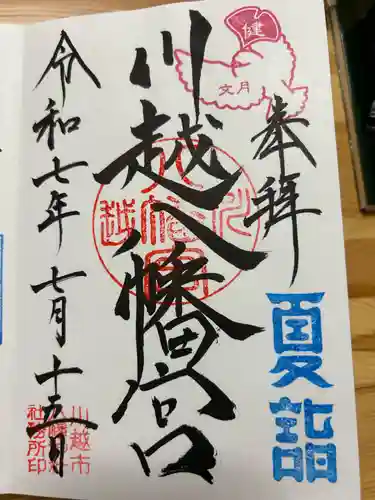 奉拝
夏詣
健
文月
川越八幡宮
川越八幡宮
令和七年七月十五日
川越市
八幡神社
社務所印